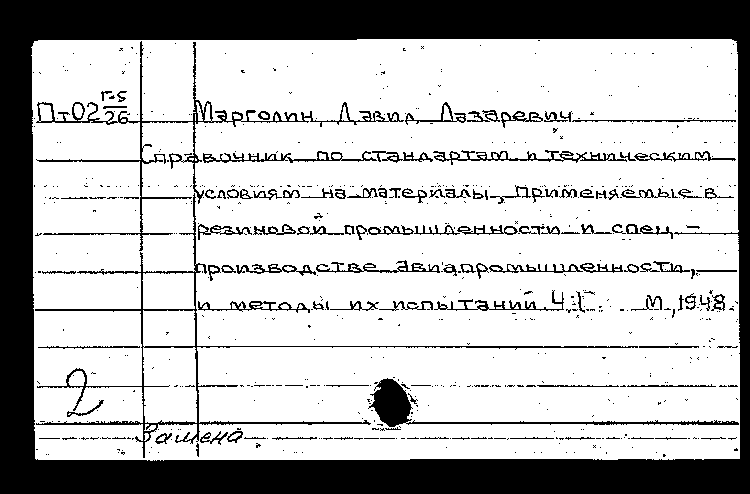 Пт02 Г-5/26 Марголин, Давид Лазаревич.
Справочник по стандартам и техническим
условиям на материалы, применяемые в
резиновой промышленности и спец. –
производстве авиапромышленности,
и методы их испытаний. Ч.I. М., 1948.
2
Замена